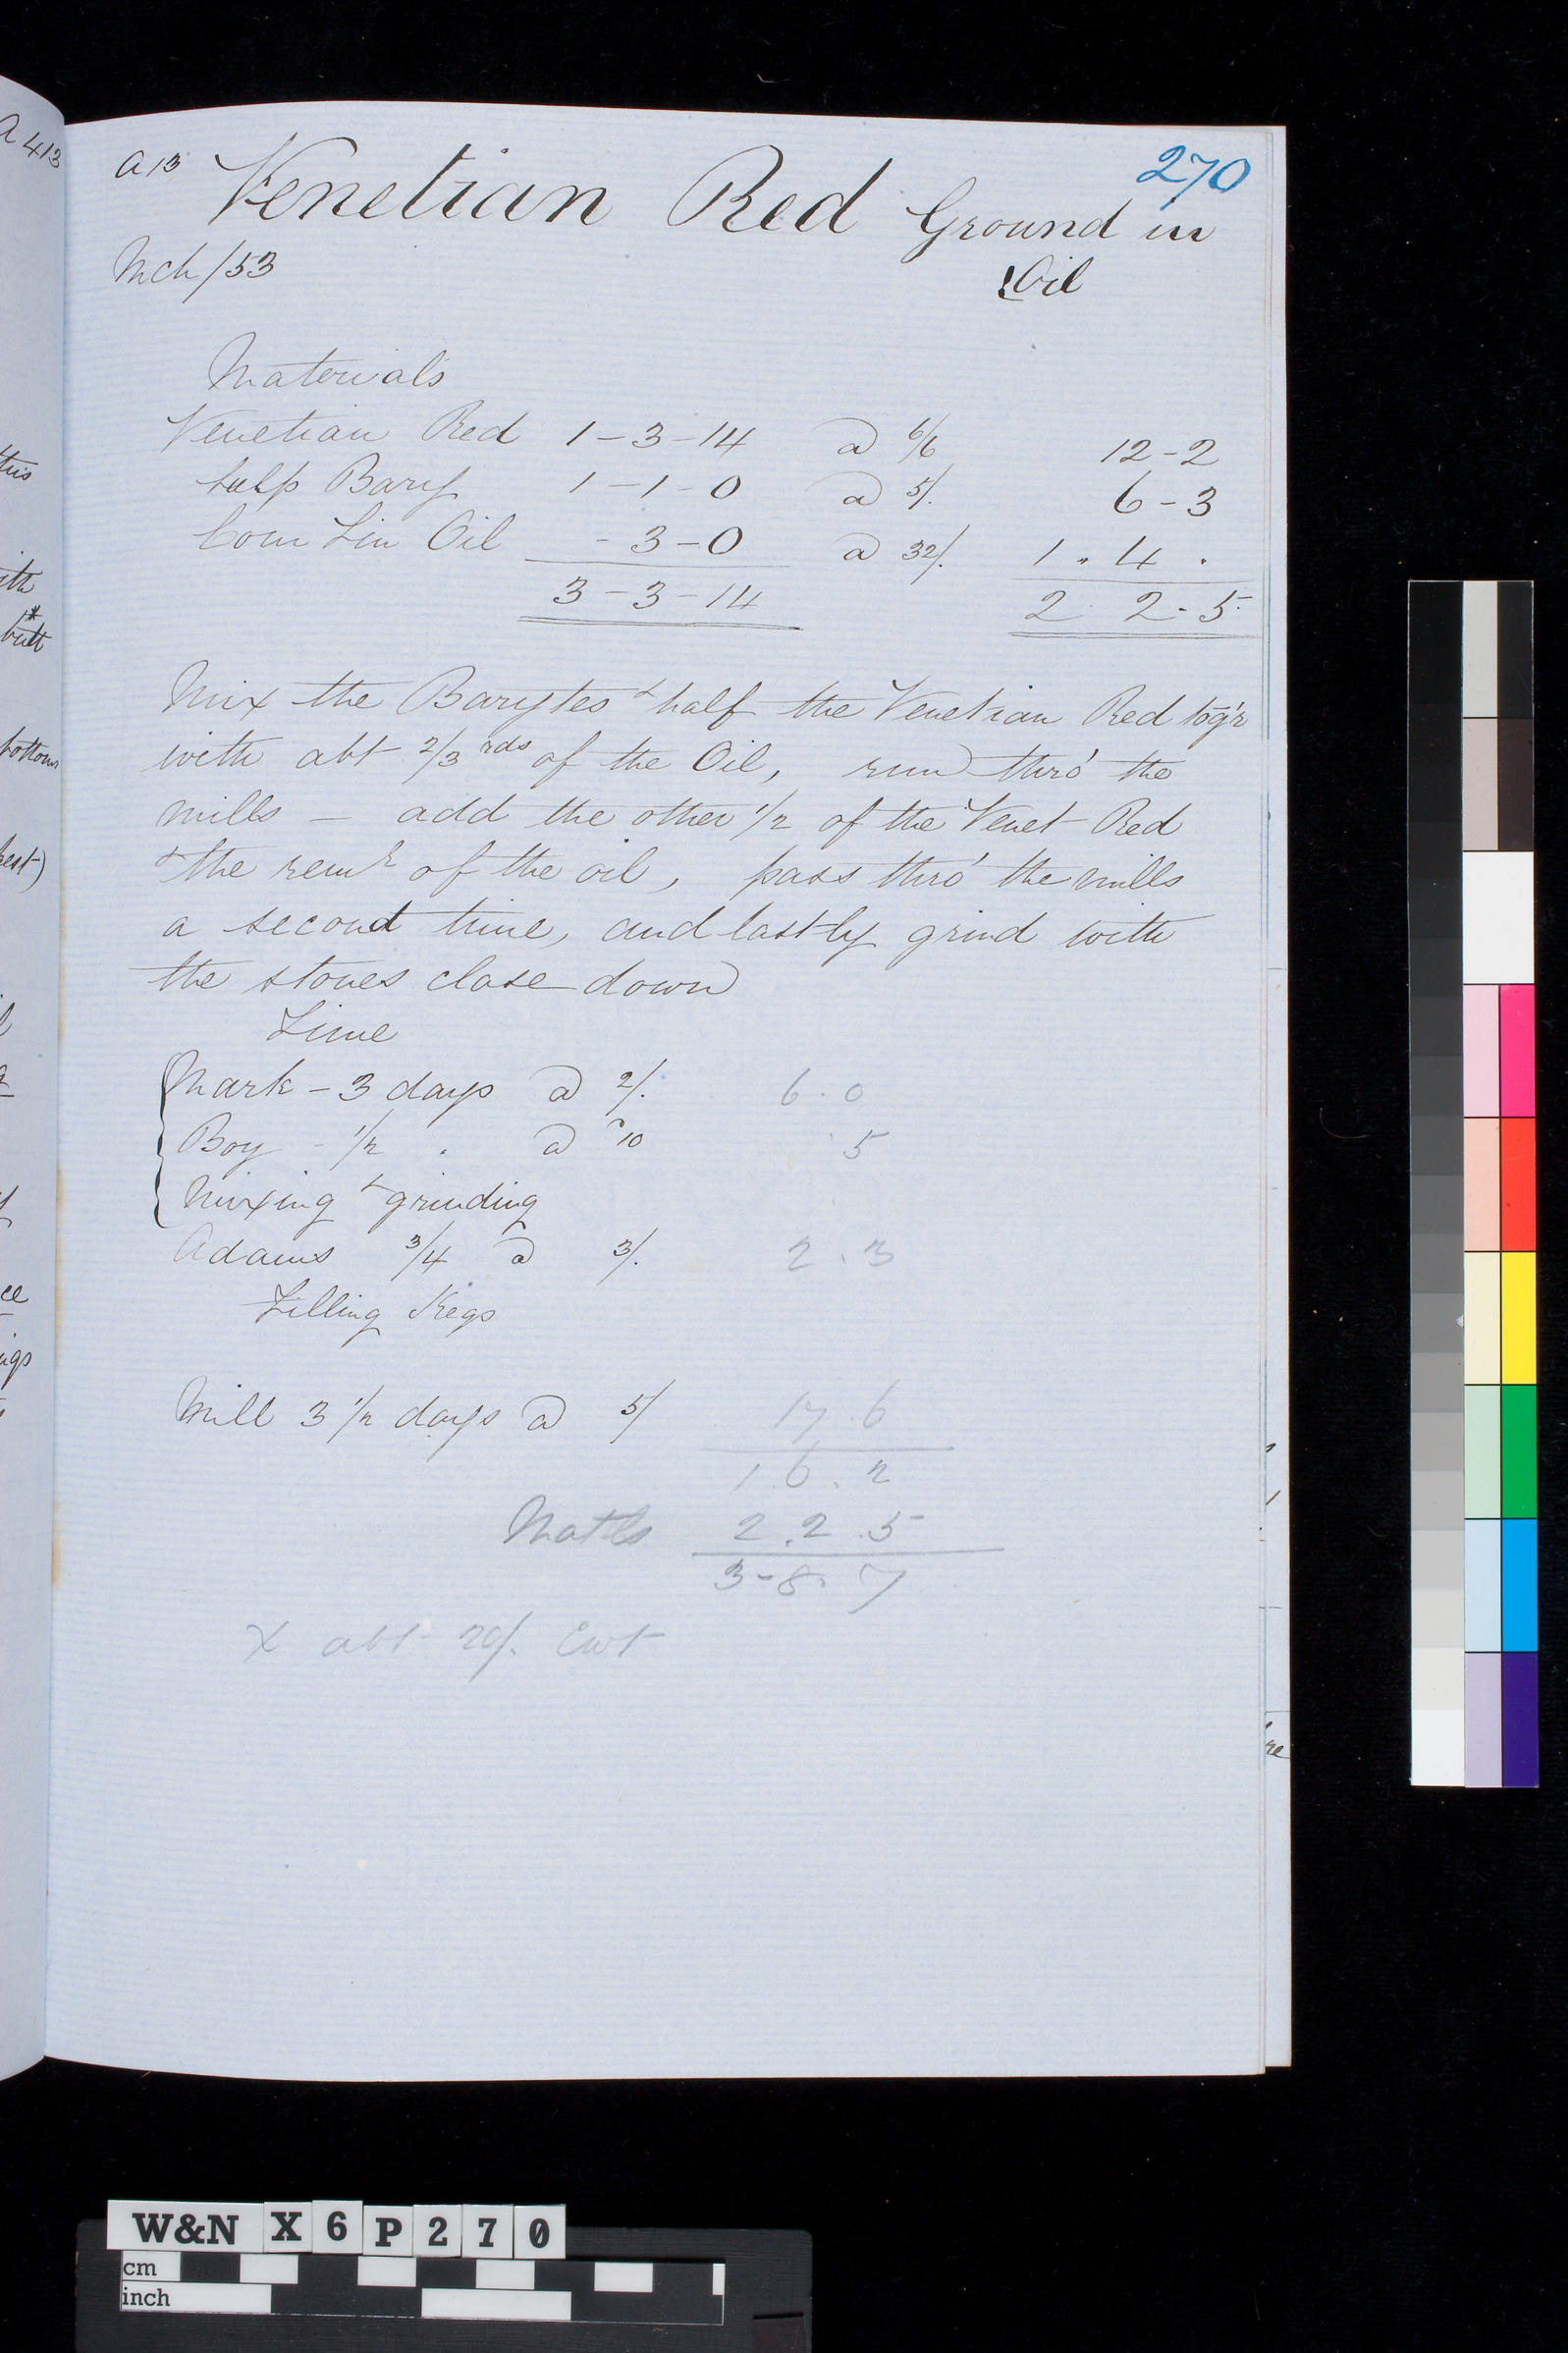 A13 Venetian Red Ground in 270
Oil
Mch/53
Materials
Venetian Red 1-3-14 @ 6/6 12-2
Sulp Bary 1-1-0 @ 5/. 6-3
Com Lin Oil -3-0 @ 32/. 1.4.
3-3-14 2 2-5
Mix the Barytes & half the Venetian Red tog'r
with abt 2/3rds of the Oil, run thro' the
mills — add the other 1/2 of the Venet Red
& the remr of the oil, pass thro' the mills
a second time, and lastly grind with
the stones close down
Time
Mark - 3 days @ 2/. 6.0
Boy - 1/2 . @ 10 5
Mixing & grinding
Adams 3/4 @ 3/. 2.3
Filling Kegs
Mill 3 1/2 days @ 5/ 17.6
1.6.2
Matls 2.2.5
3-8.7
X abt 20/. Cwt
A413
this
ith
butt
bottom
best)
ce
ngs
re
W&N X6P270
cm
inch